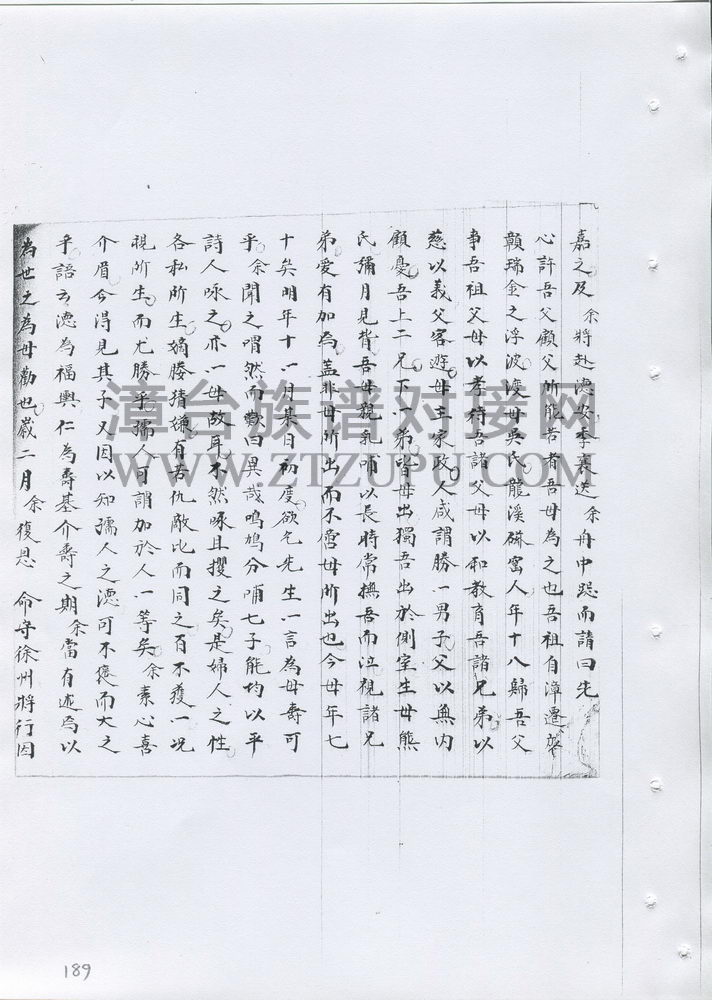 嘉之及余將赴德安季襄送余舟中跽而請曰先
心許吾父顧父所能若者吾母為之也吾祖自漳遷
贑瑞金之浮波渡母吳氏龍溪磁窰人年十八歸吾父
事吾祖父母以孝待吾諸父母以和教育吾諸兄弟以
慈以義父客遊母主家政人咸謂勝一男子父以無內
顧憂吾上二兄下一弟皆母出獨吾出於側室生母熊
氏彌月見背吾母親乳哺以長時常撫吾而泣視諸兄
弟愛有加為蓋非母所出而不啻母所出也今母年七
十矣明年十一月某日初度欲乞先生一言為母壽可
乎余聞之喟然而歎曰異哉鳴鳩分哺七子能均以平
詩人咏之亦一母故耳不然啄且攫之矣是婦人之性
各私所生嫡媵猜嫌有若仇敵比而同之百不獲一况
視所生而尤勝乎孺人可謂加於人一等矣余素心喜
介眉今得見其子又因以知孺人之德可不褒而大之
乎語云德為福輿仁為壽基介壽之期余當有述為以
為世之為母勸也歲二月余復恩 命守徐州將行因
漳台族谱对接网
WWW.ZTZUPU.COM
189